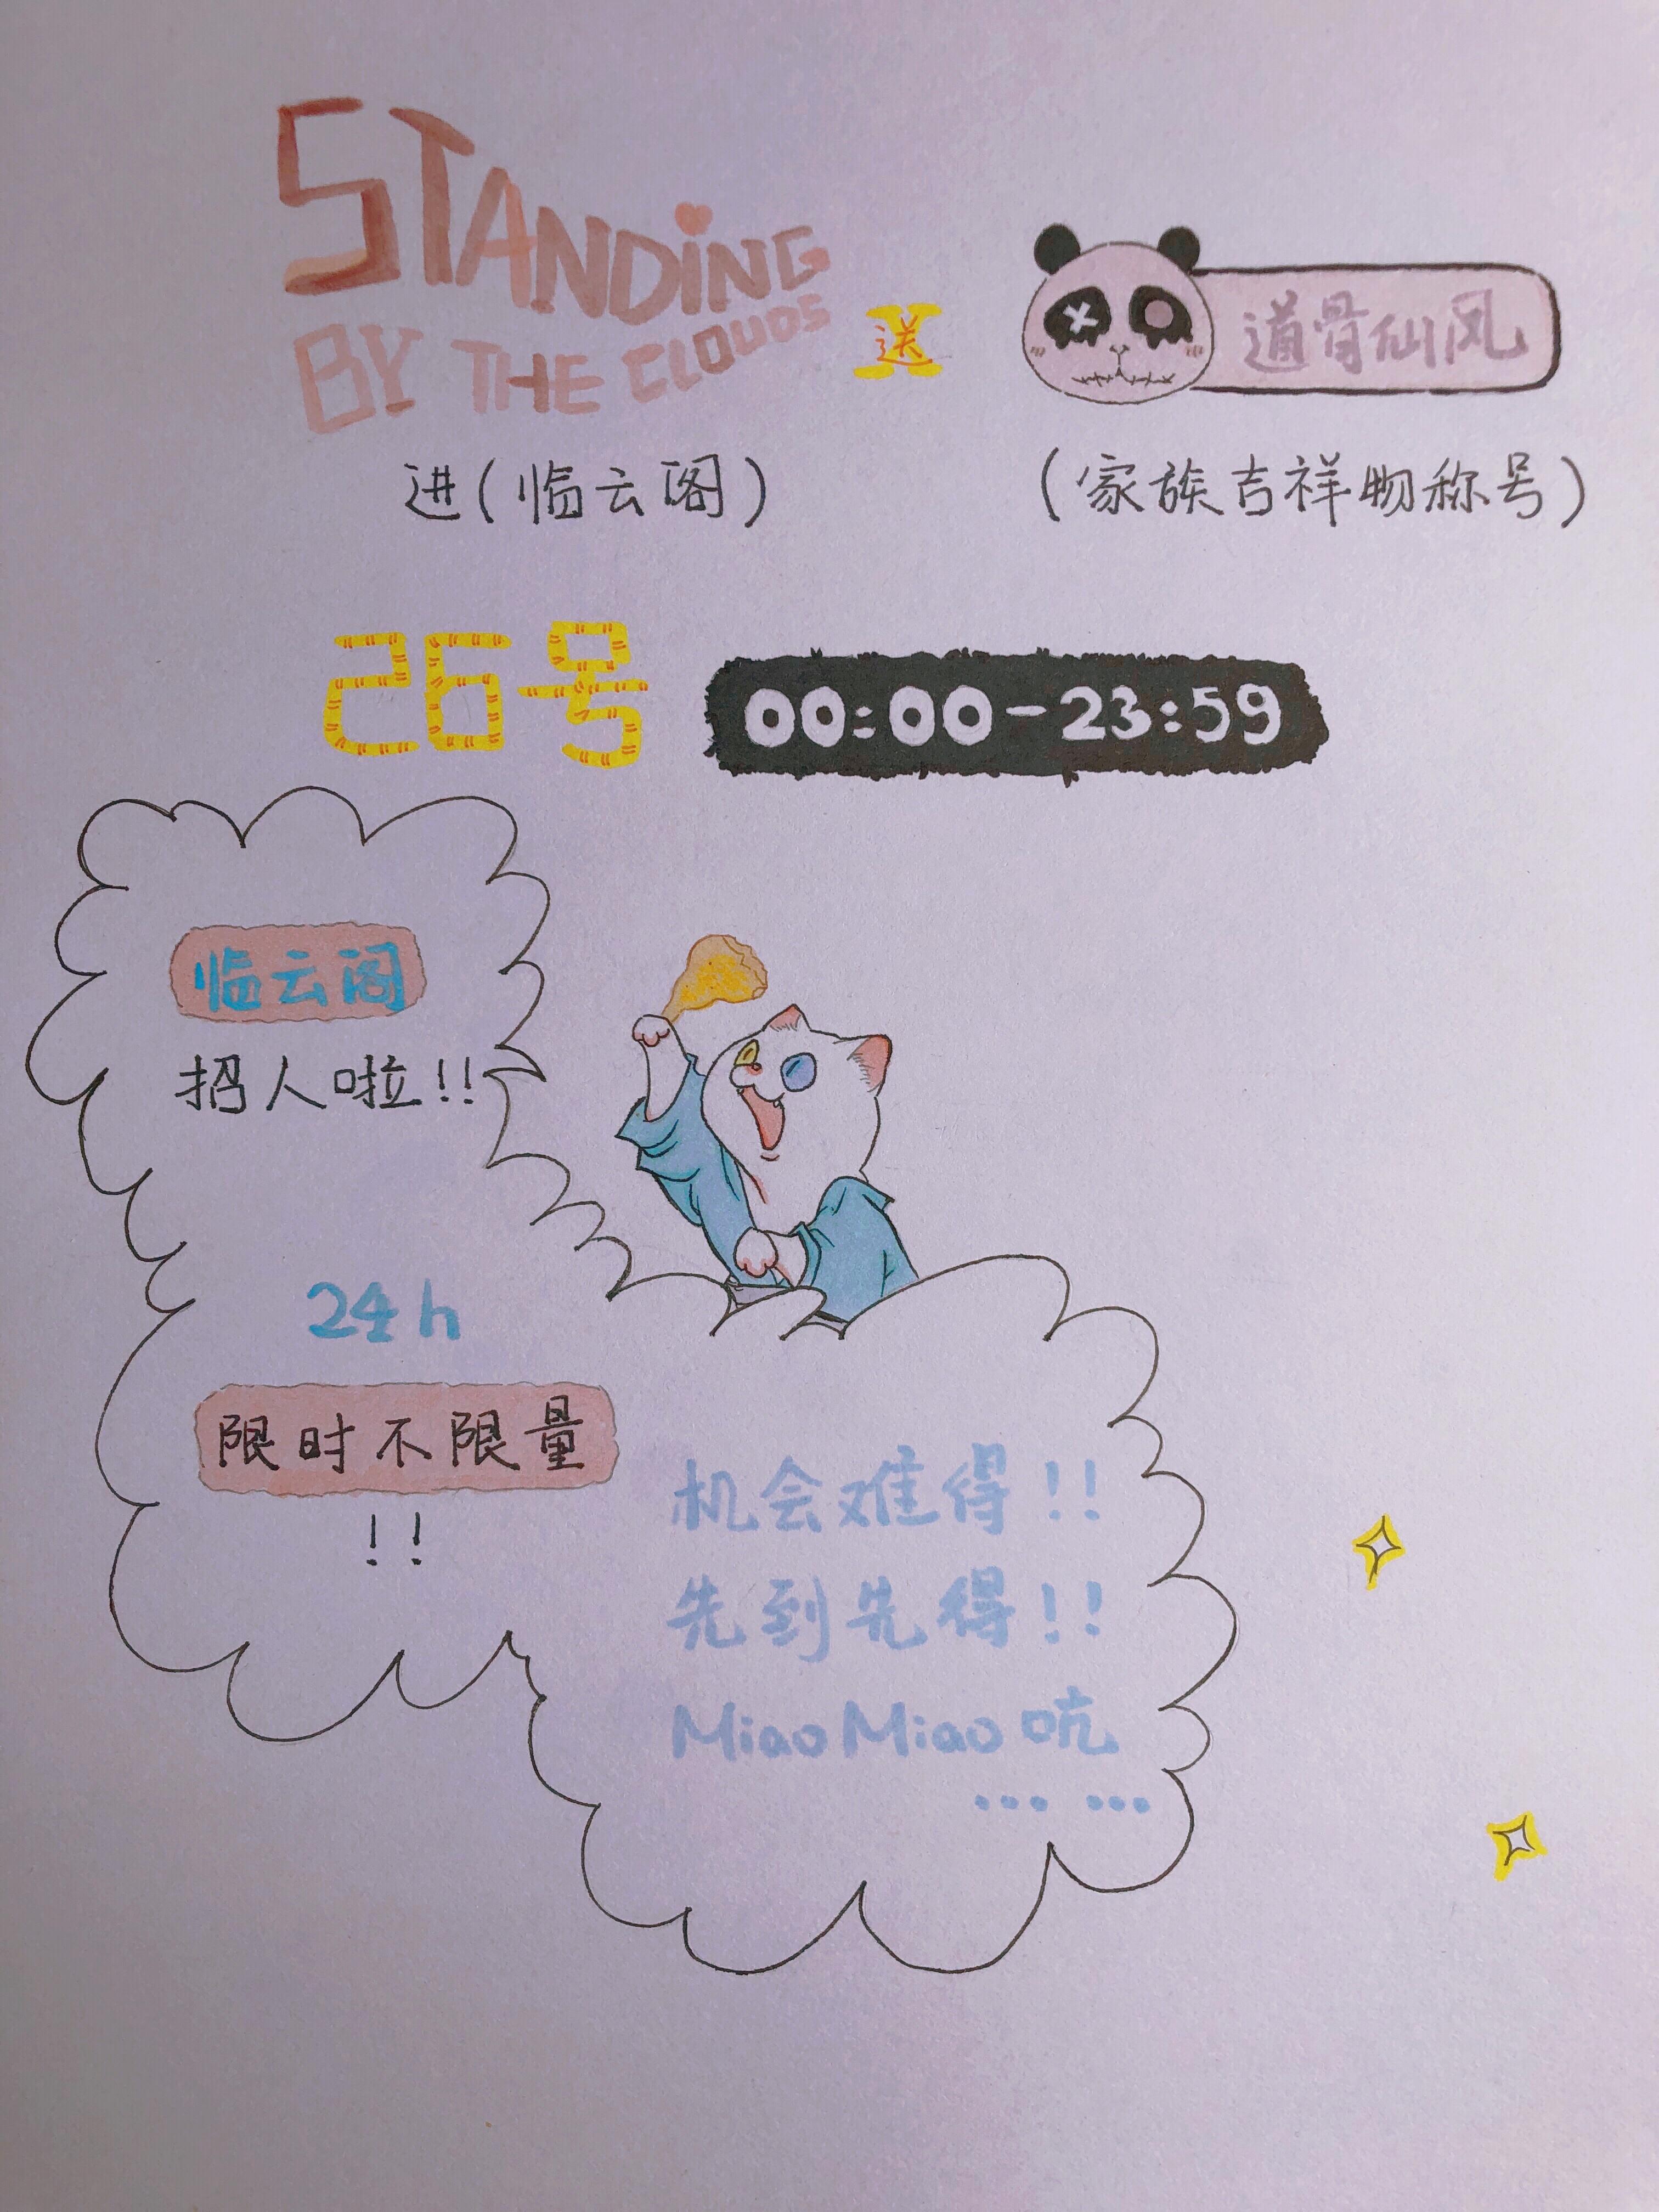 STANDiNG
BY THE CLOUDS
送
道骨仙风
进(临云阁)
(家族吉祥物称号)
26号
00:00-23:59
临云阁
招人啦!!
24h
限时不限量
!!
机会难得!!
先到先得!!
MiaoMiao吭
... ...